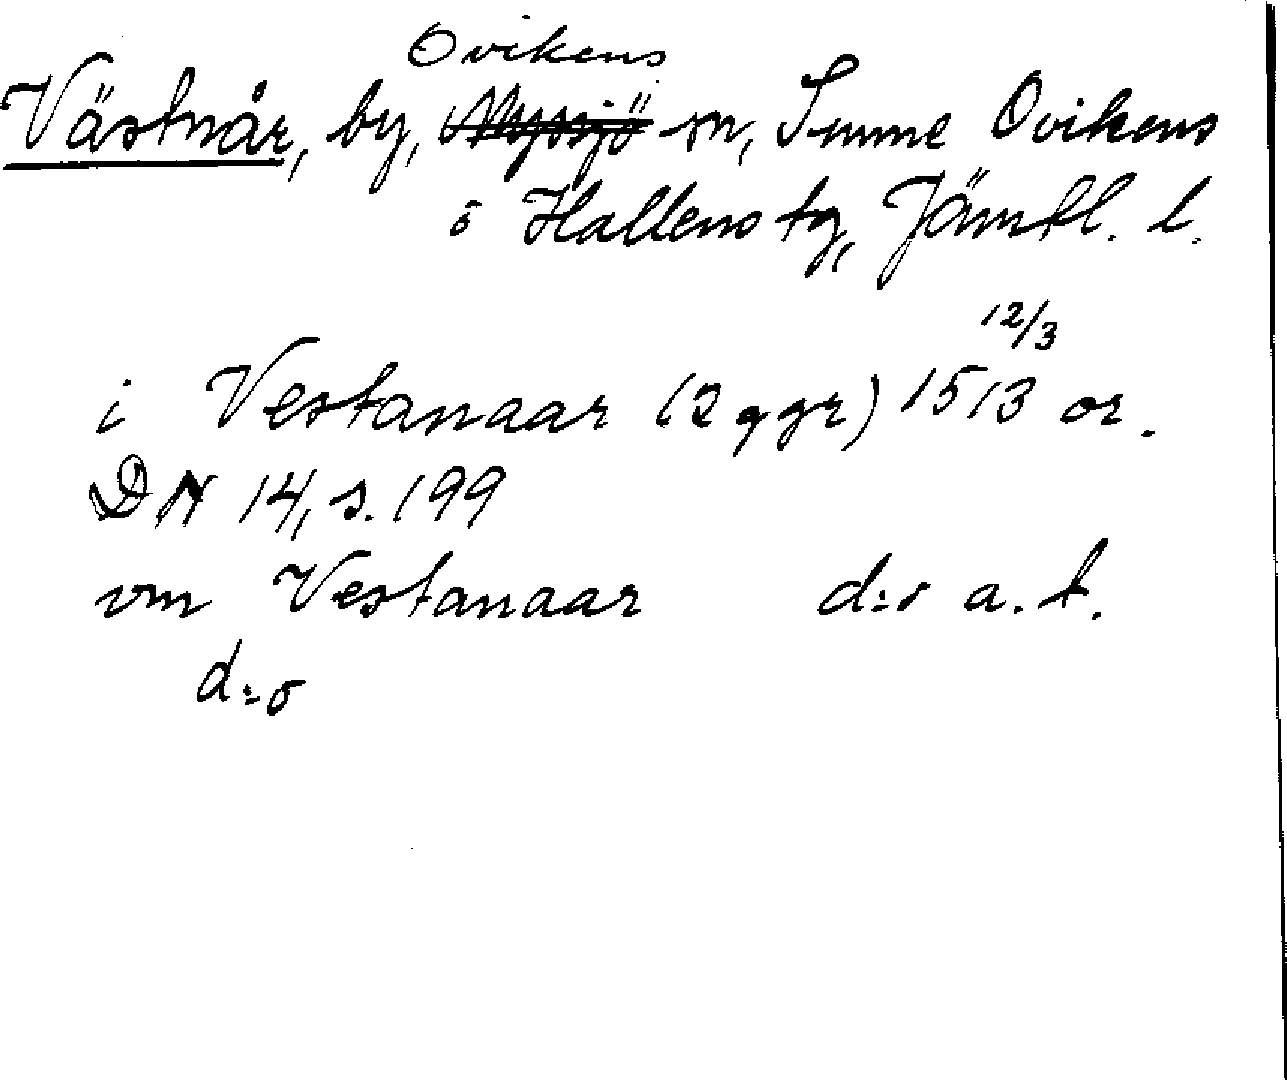 Ovikens
Västnår, by, Myssjö sn, Sunne Ovikens
o Hallens tg, Jämtl. l.
12/3
i Vestanaar (2 ggr) 1513 or.
DN 14, s. 199
vm Vestanaar d:o a. st.
d:o